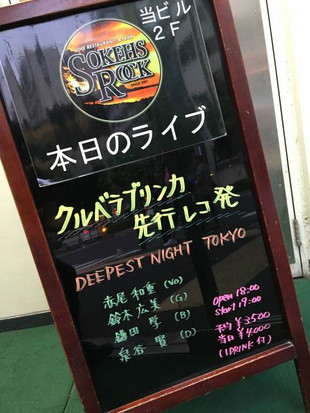 LIVE RESTAURANT & BAR
SOKEHS
ROCK
当ビル
2F
本日のライブ
クルベラブリンカ
先行レコ発
DEEPEST NIGHT TOKYO
赤尾 和重 (VO)
鈴木 広美 (G)
鎌田 学 (B)
泉谷 賢 (D)
open 18:00
start 19:00
予約 ¥3500
当日 ¥4,000
(1DRINK付)